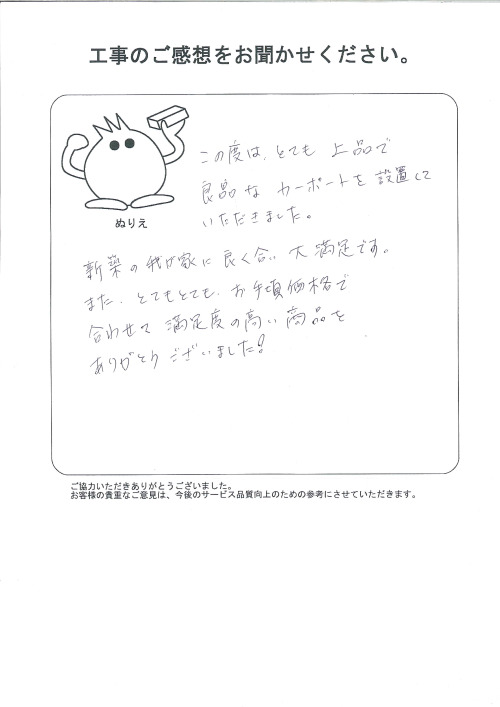 工事のご感想をお聞かせください。
ぬりえ
この度は、とても 上品で
良品な カーポートを 設置して
いただきました。
新築の我が家に 良く合い 大満足です。
また、とてもとても、お手頃価格で
合わせて 満足度の高い 商品を
ありがとうございました!
ご協力いただきありがとうございました。
お客様の貴重なご意見は、今後のサービス品質向上のための参考にさせていただきます。